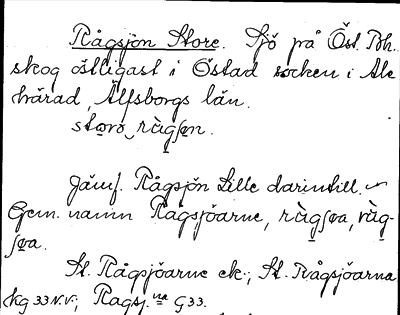 Rågsjön Store. Sjö på Öst. Bh.
skog östligast i Östad socken i Ale
härad, Älfsborgs län.
Jämf. Rågsjön Lille darintill.
Gem. namn Rågsjöarne,
St. Rågsjöarne ek.; St. Rågsjöarna
kg 33 N.V.; Ragsj. na G 33.